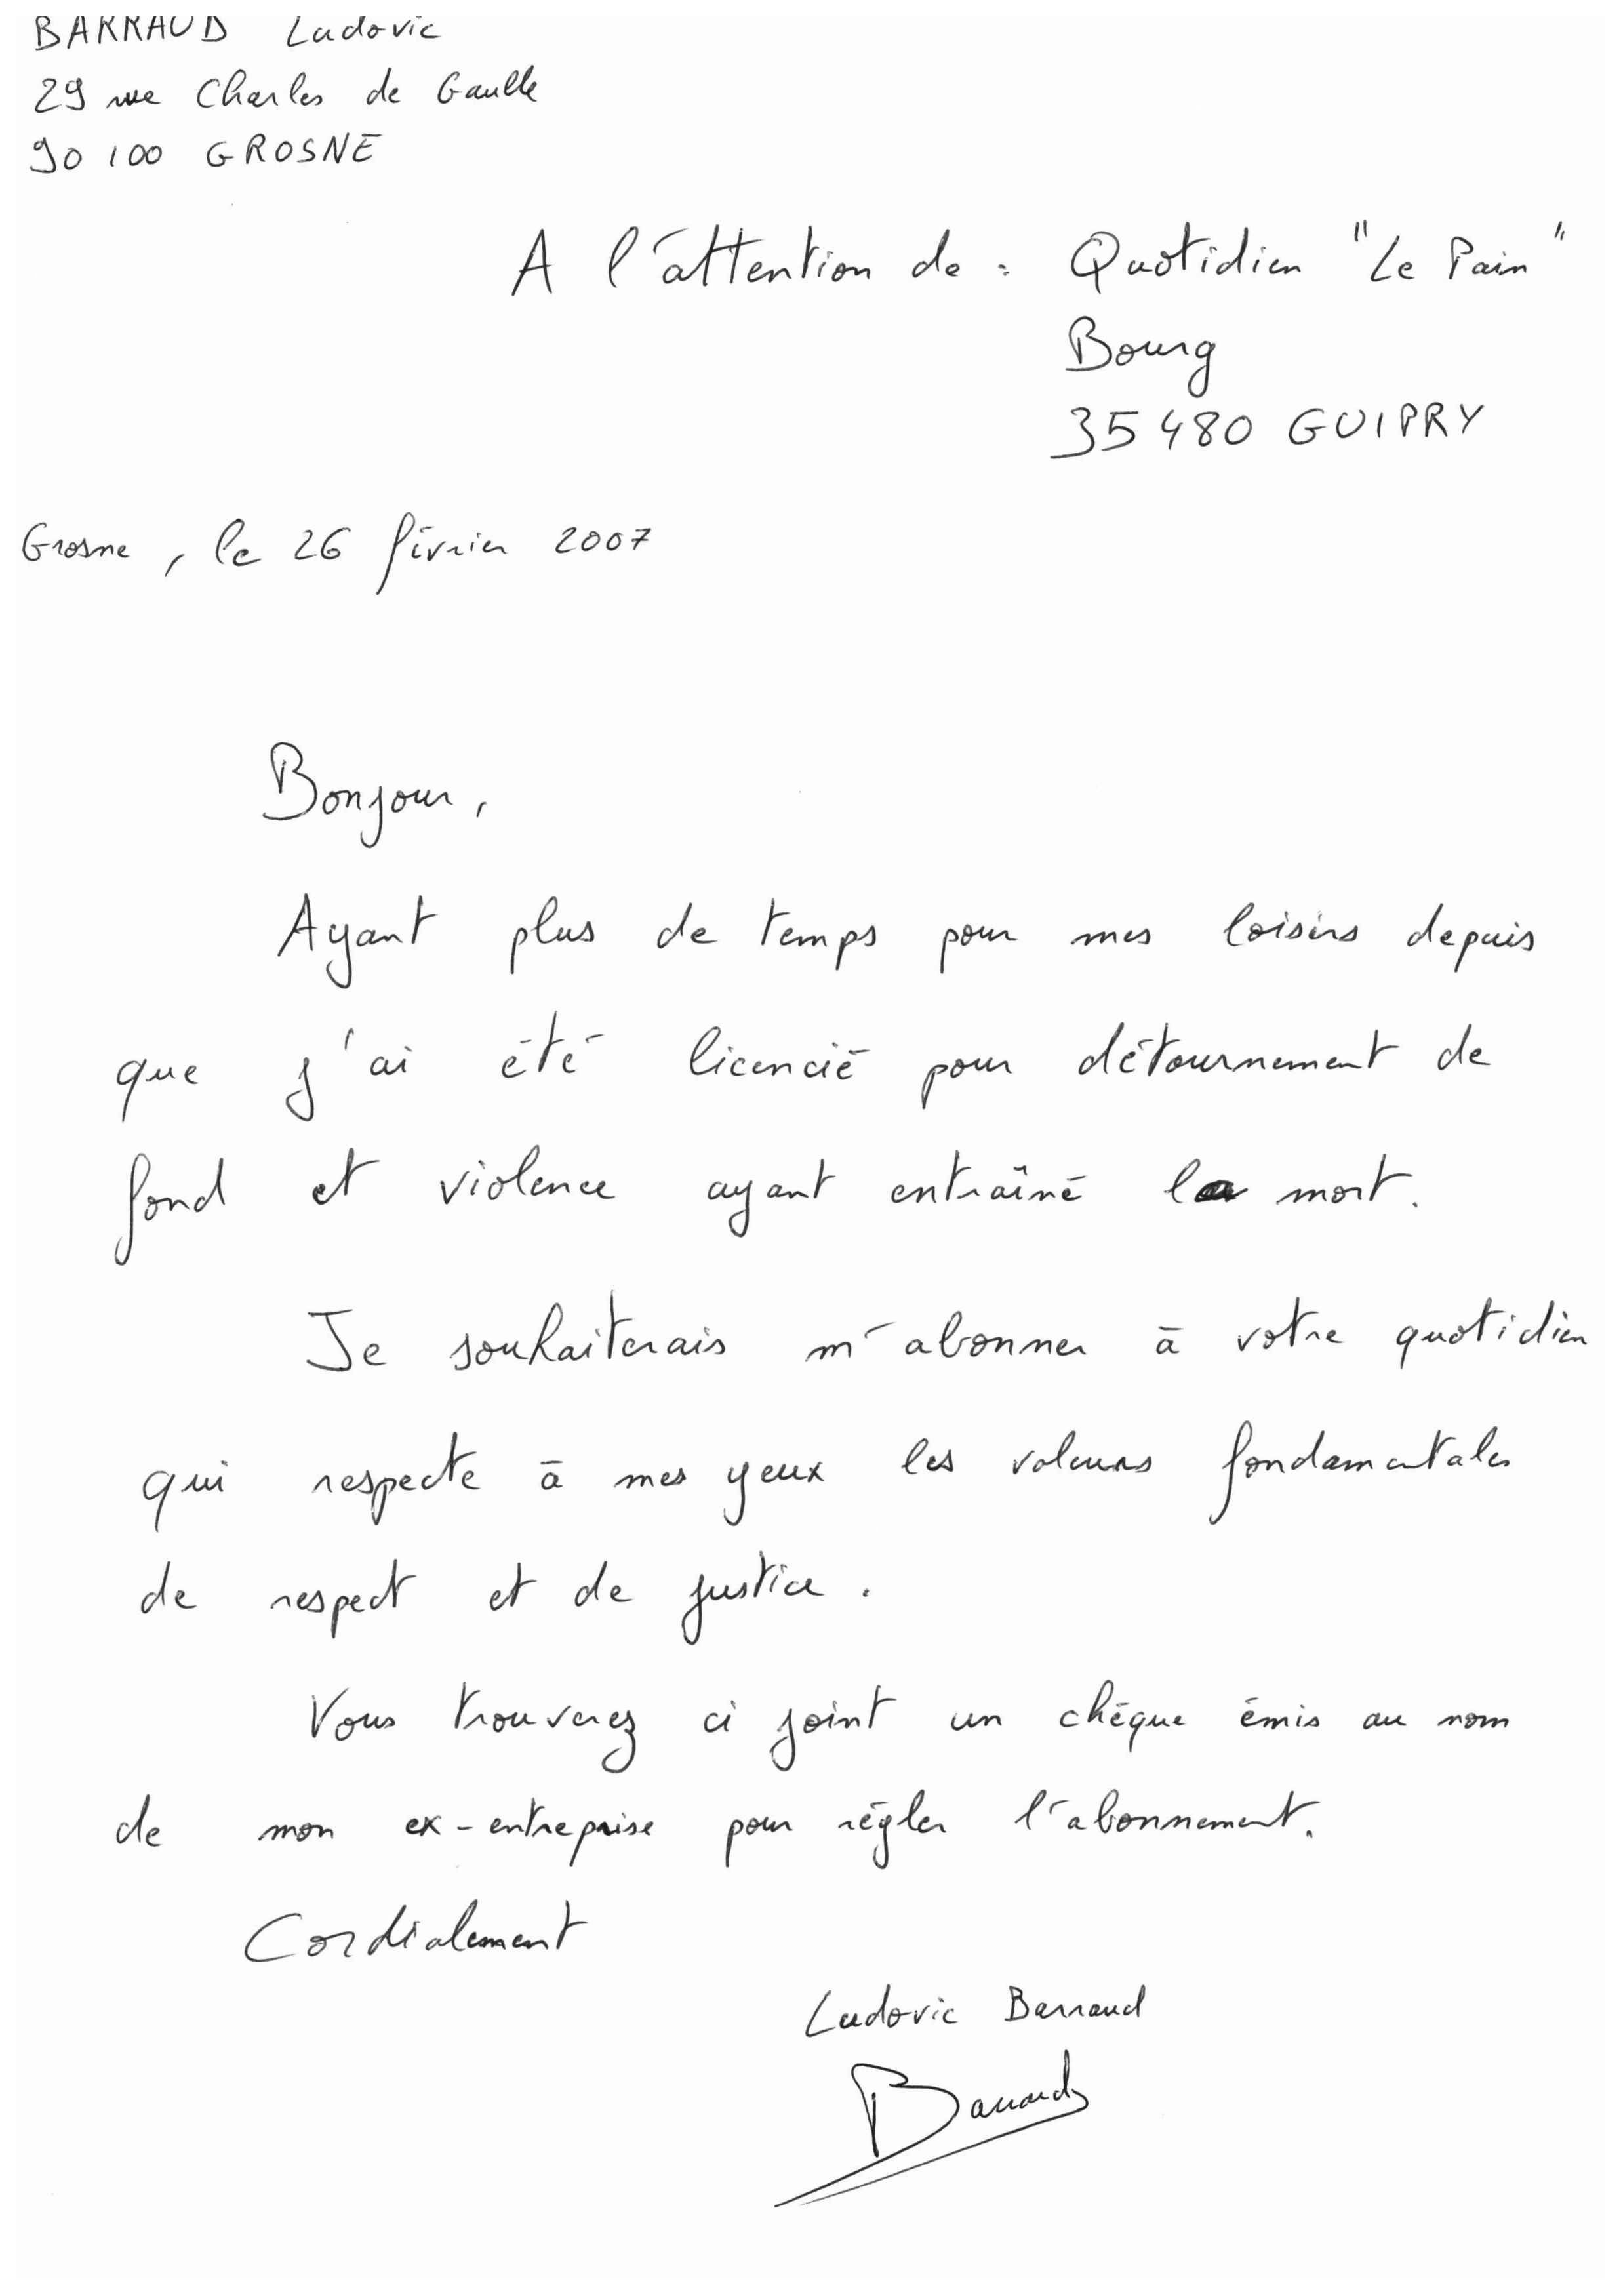 BARRAUD Ludovic
29 rue Charles de Gaulle
90 100 GROSNE
A l'attention de : Quotidien "Le Pain"
Bourg
35480 GUIPRY
Grosne, le 26 février 2007
Bonjour,
Ayant plus de temps pour mes loisirs depuis
que j'ai été licencié pour détournement de
fond et violence ayant entraîné la mort.
Je souhaiterais m'abonner à votre quotidien
qui respecte à mes yeux les valeurs fondamentales
de respect et de justice.
Vous trouverez ci joint un chéque émis au nom
de mon ex-entreprise pour régler l'abonnement.
Cordialement
Ludovic Barraud
Barraud